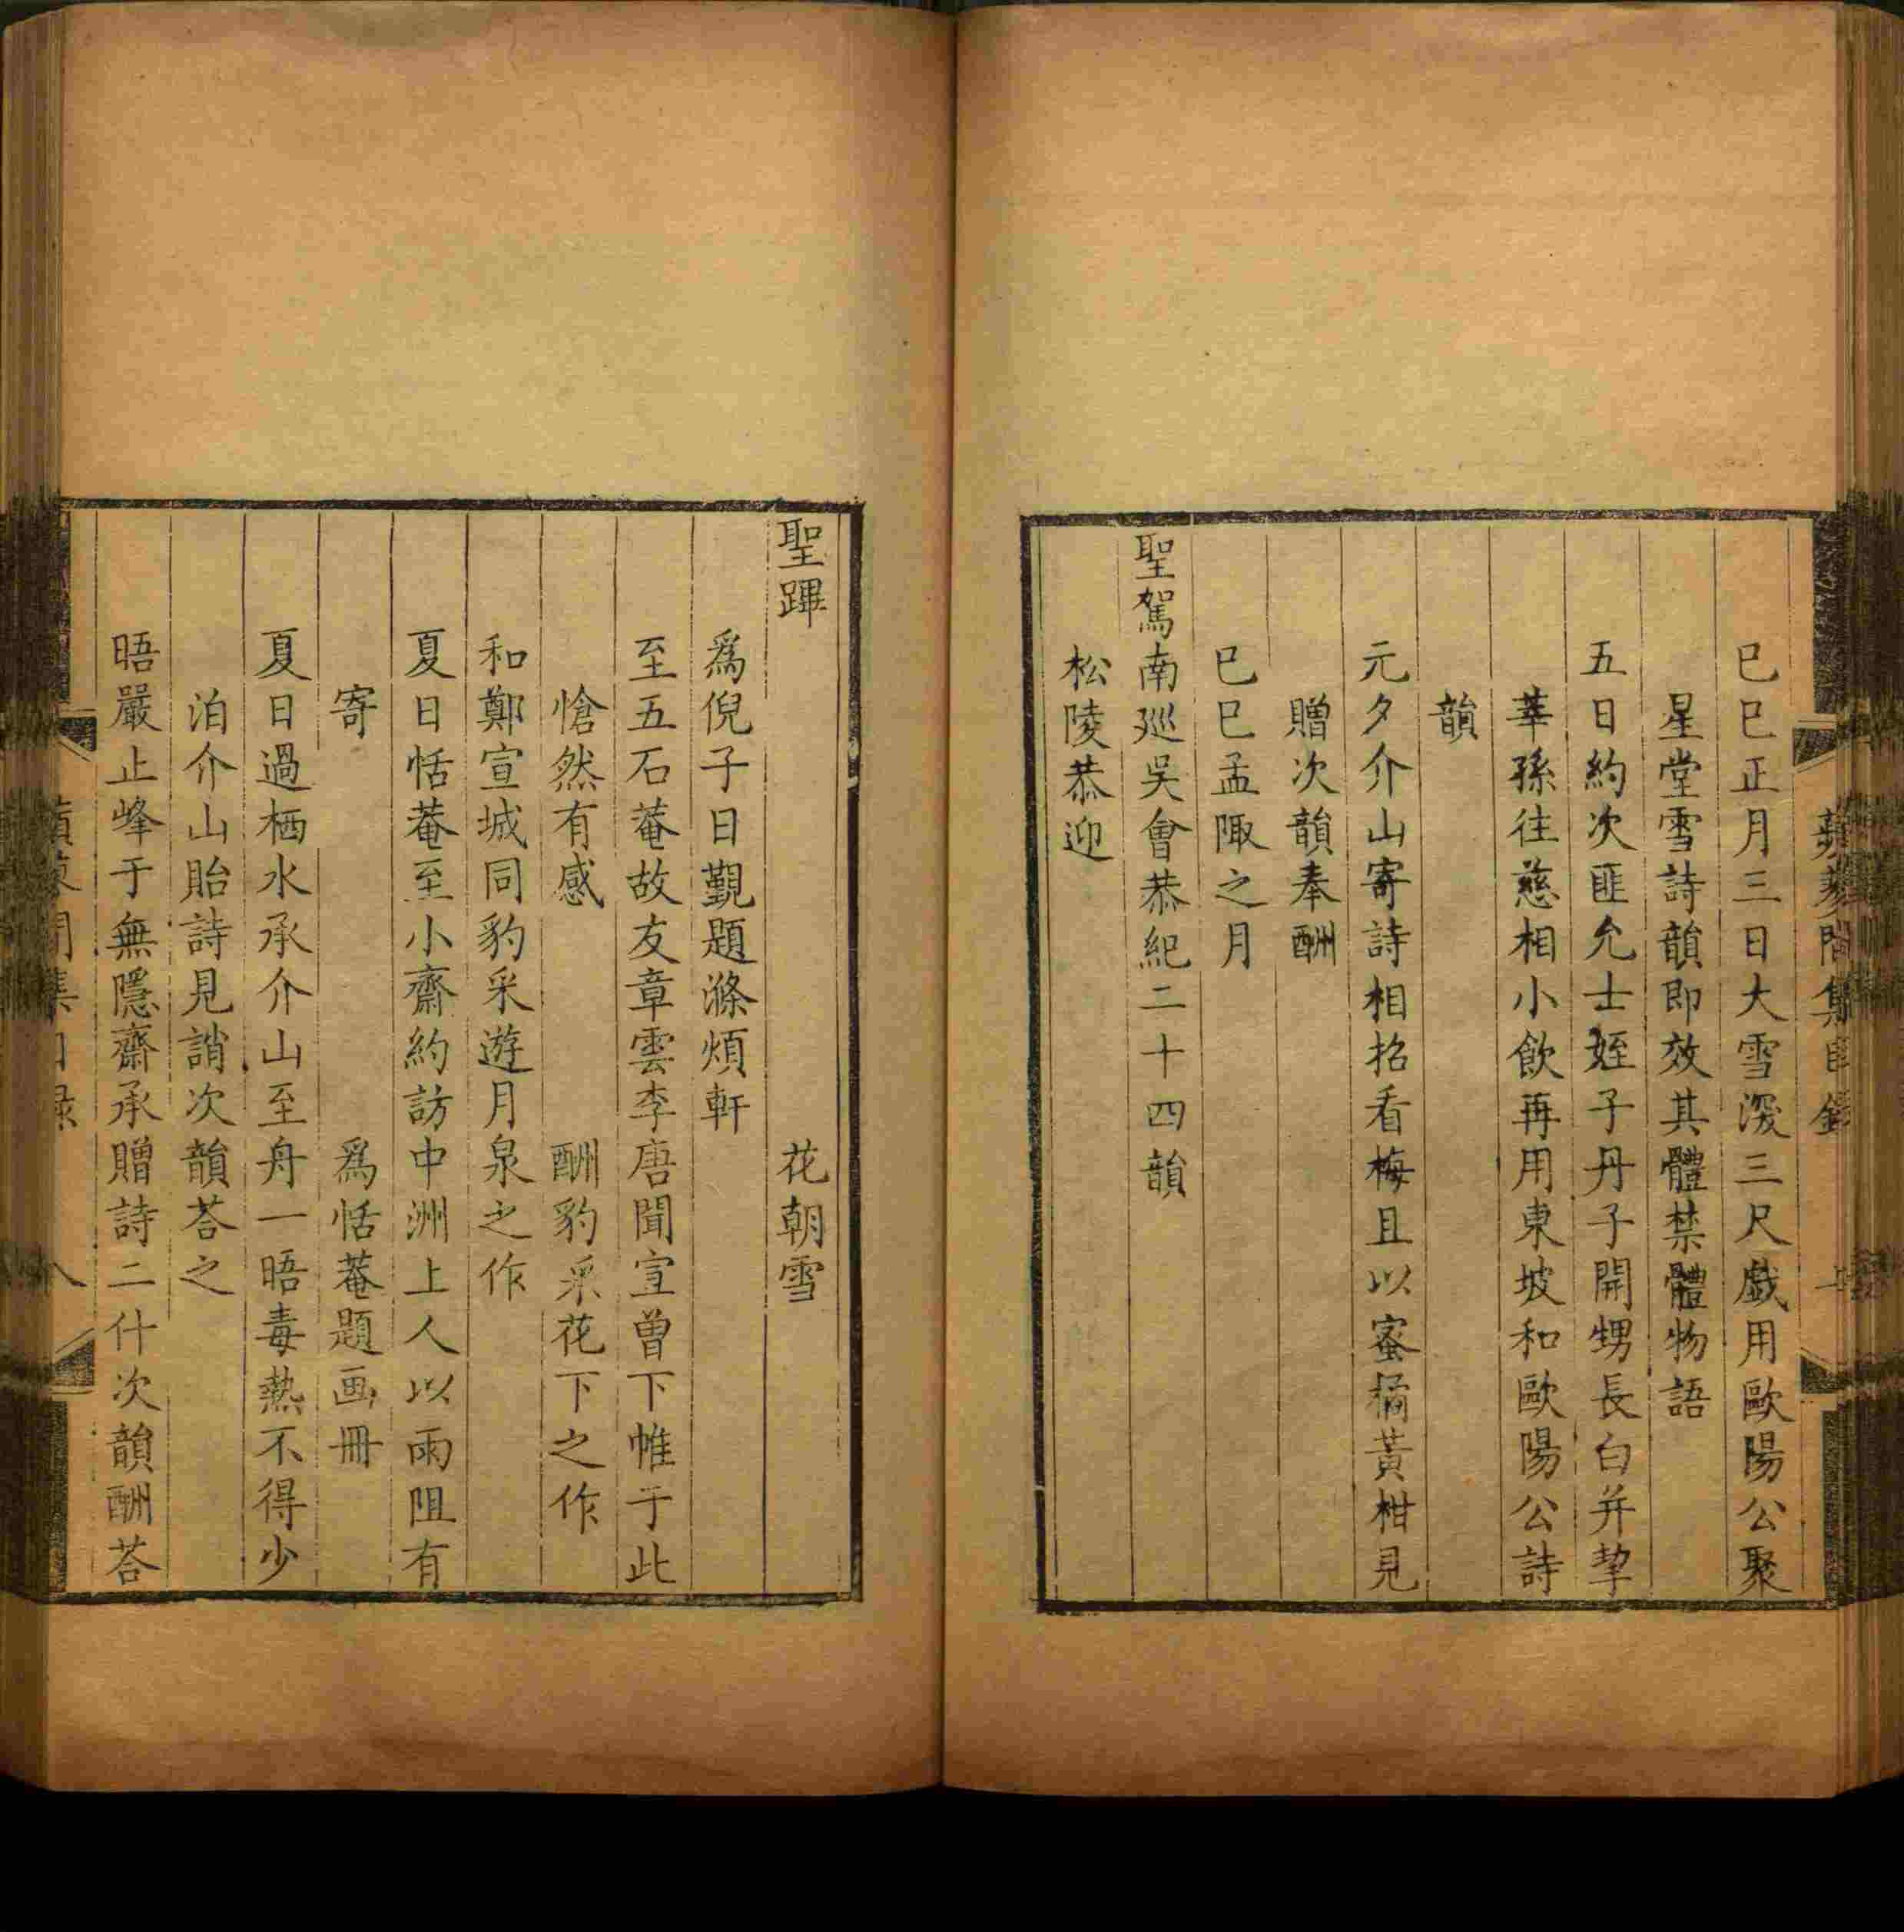 巳巳正月三日大雪深三尺戲用歐陽公聚
星堂雪詩韻即效其體禁體物語
五日約次匪允士姪子丹子開甥長白并挈
華孫往慈相小飲再用東坡和歐陽公詩
韻
元夕介山寄詩相招看梅且以蜜橘黃柑見
贈次韻奉酬
巳巳孟陬之月
聖駕南廵吳會恭紀二十四韻
松陵恭迎
聖蹕 花朝雪
爲倪子日觐題滌煩軒
至五石菴故友章雲李唐聞宣曾下帷于此
愴然有感 酬豹采花下之作
和鄭宣城同豹采遊月泉之作
夏日恬菴至小齋約訪中洲上人以雨阻有
寄 爲恬菴題画冊
夏日過栖水承介山至舟一晤毒熱不得少
泊介山貽詩見誚次韻荅之
晤嚴止峰于無隱齋承贈詩二什次韻酬荅